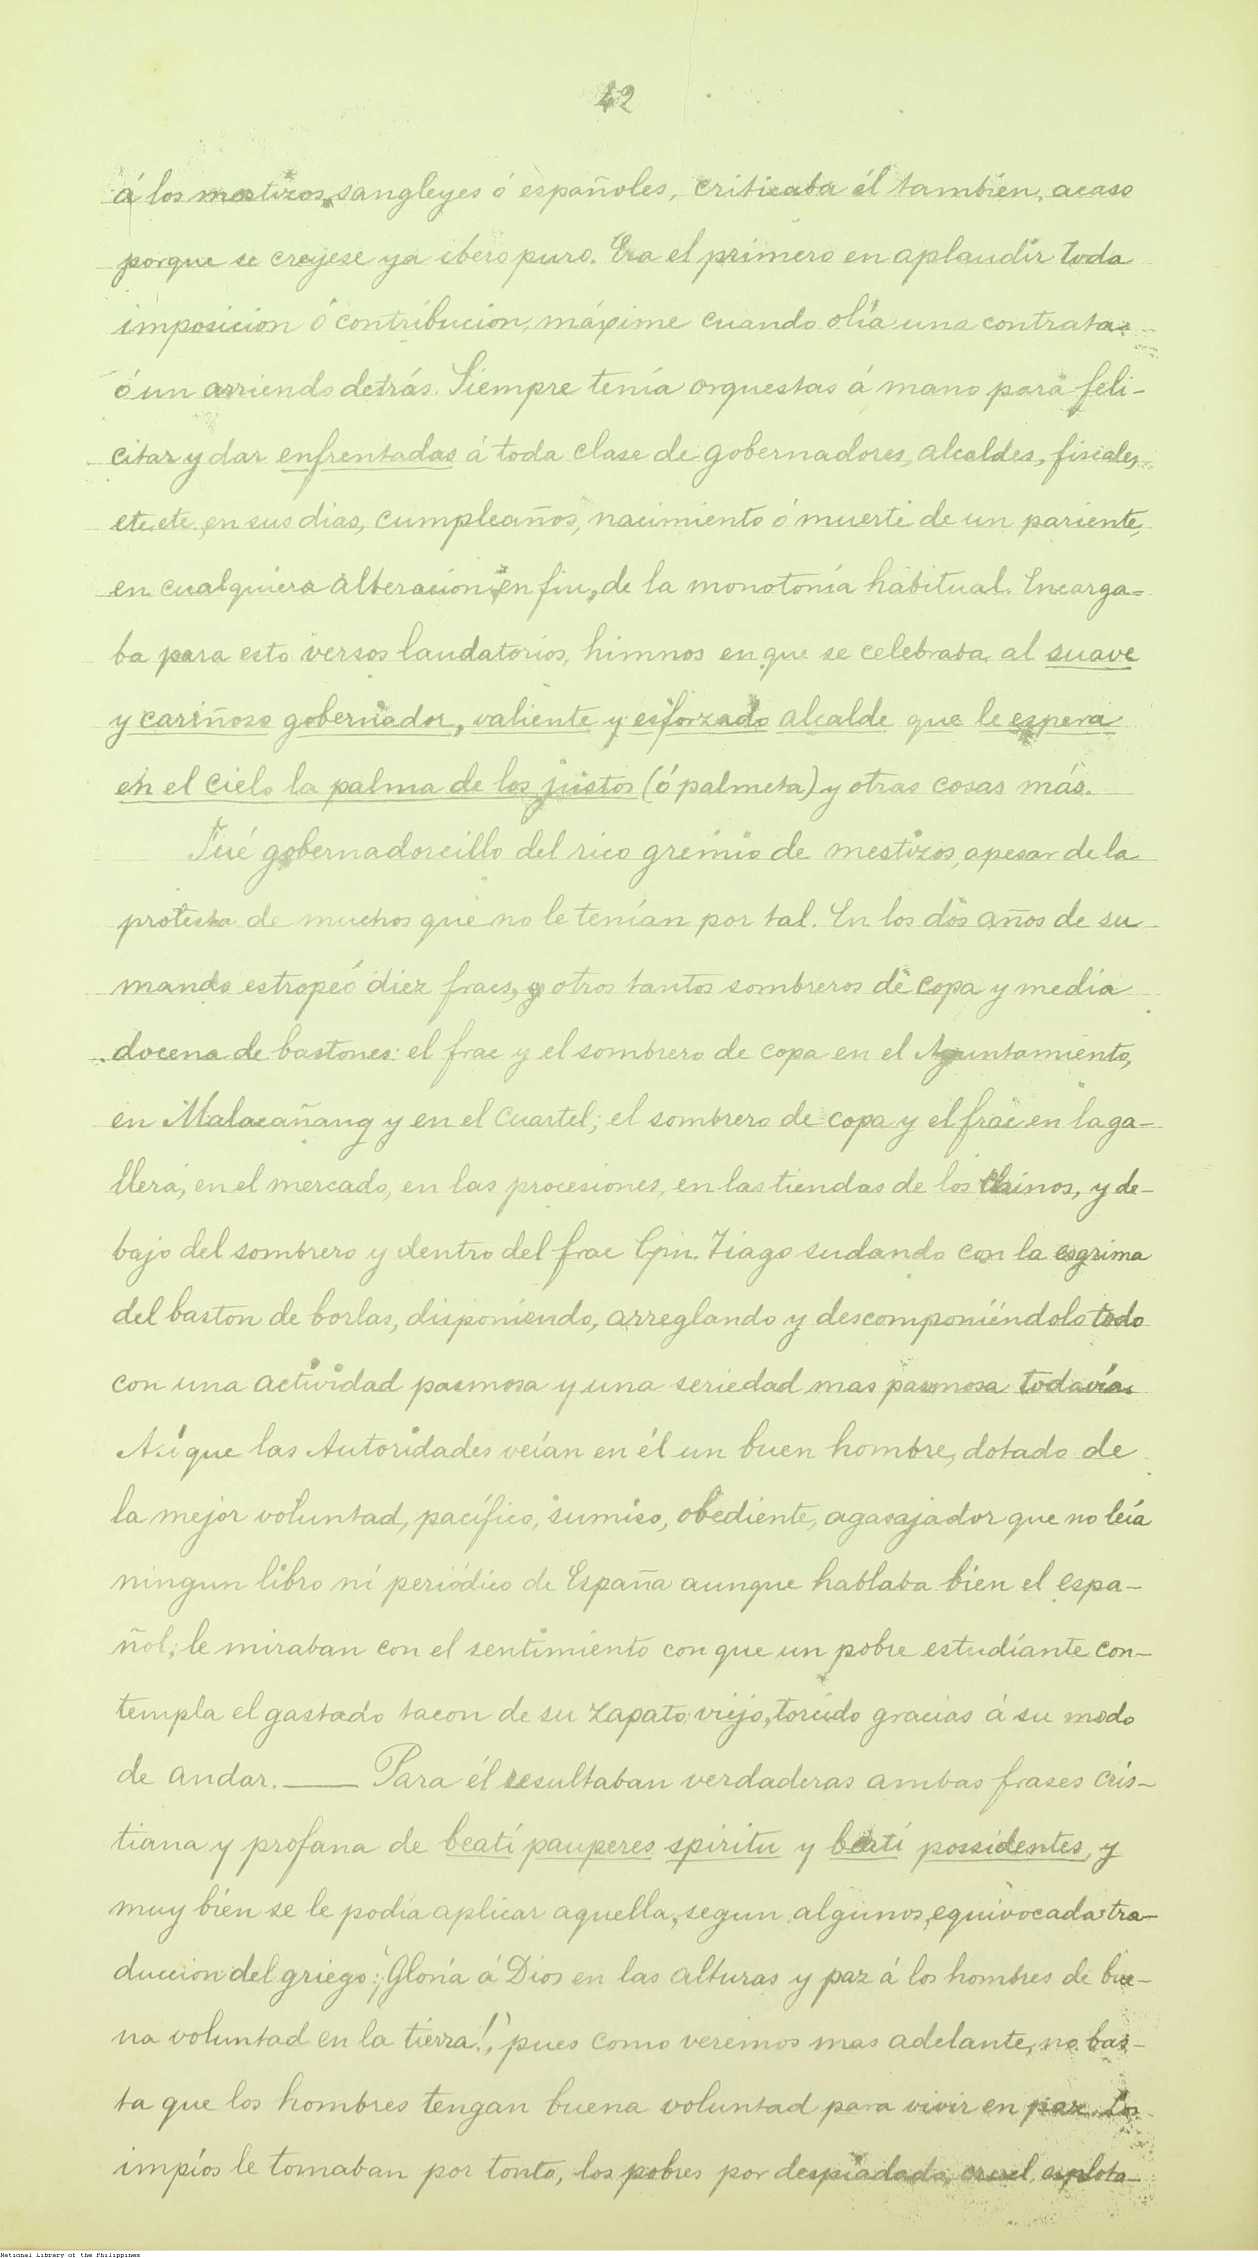 42
á los mestizos, sangleyes ó españoles, criticaba él tambien, acaso
porque se creyese ya ibero puro. Era el primero en aplaudir toda
imposicion ó contribucion, máxime cuando olía una contrata
ó un arriendo detrás. Siempre tenía orquestas á mano para feli-
citar y dar enfrentadas á toda clase de gobernadores, alcaldes, fiscales,
etc. etc. en sus dias, cumpleaños, nacimiento ó muerte de un pariente,
en cualquiera alteracion en fin, de la monotonía habitual. Encarga-
ba para esto versos laudatorios, himnos en que se celebraba al suave
y cariñoso gobernador, valiente y esforzado alcalde que le espera
en el cielo la palma de los justos (ó palmeta) y otras cosas más.
Fué gobernadorcillo del rico gremio de mestizos, apesar de la
protesta de muchos que no le tenían por tal. En los dos años de su
mando estropeó diez fracs, y otros tantos sombreros de copa y media
docena de bastones: el frac y el sombrero de copa en el Ayuntamiento,
en Malacañang y en el cuartel; el sombrero de copa y el frac en la ga-
llera, en el mercado, en las procesiones, en las tiendas de los Chinos, y de-
bajo del sombrero y dentro del frac Cpn. Tiago sudando con la esgrima
del baston de borlas, disponiendo, arreglando y descomponiéndolo todo
con una actividad pasmosa y una seriedad mas pasmosa todavía.
Así que las Autoridades veían en él un buen hombre, dotado de
la mejor voluntad, pacífico, sumiso, obediente, agasajador que no leía
ningun libro ni periódico de España aunque hablaba bien el espa-
ñol; le miraban con el sentimiento con que un pobre estudiante con-
templa el gastado tacon de su zapato viejo, torcido gracias á su modo
de andar. — Para él resultaban verdaderas ambas frases cris-
tiana y profana de beati pauperes spiritu y beati possidentes, y
muy bien se le podía aplicar aquella, segun algunos, equivocada tra-
duccion del griego: ¡Gloria á Dios en las alturas y paz á los hombres de bue-
na voluntad en la tierra!, pues como veremos mas adelante, no bas-
ta que los hombres tengan buena voluntad para vivir en paz. Los
impíos le tomaban por tonto, los pobres por despiadado, cruel, esplota-
National Library of the Philippines